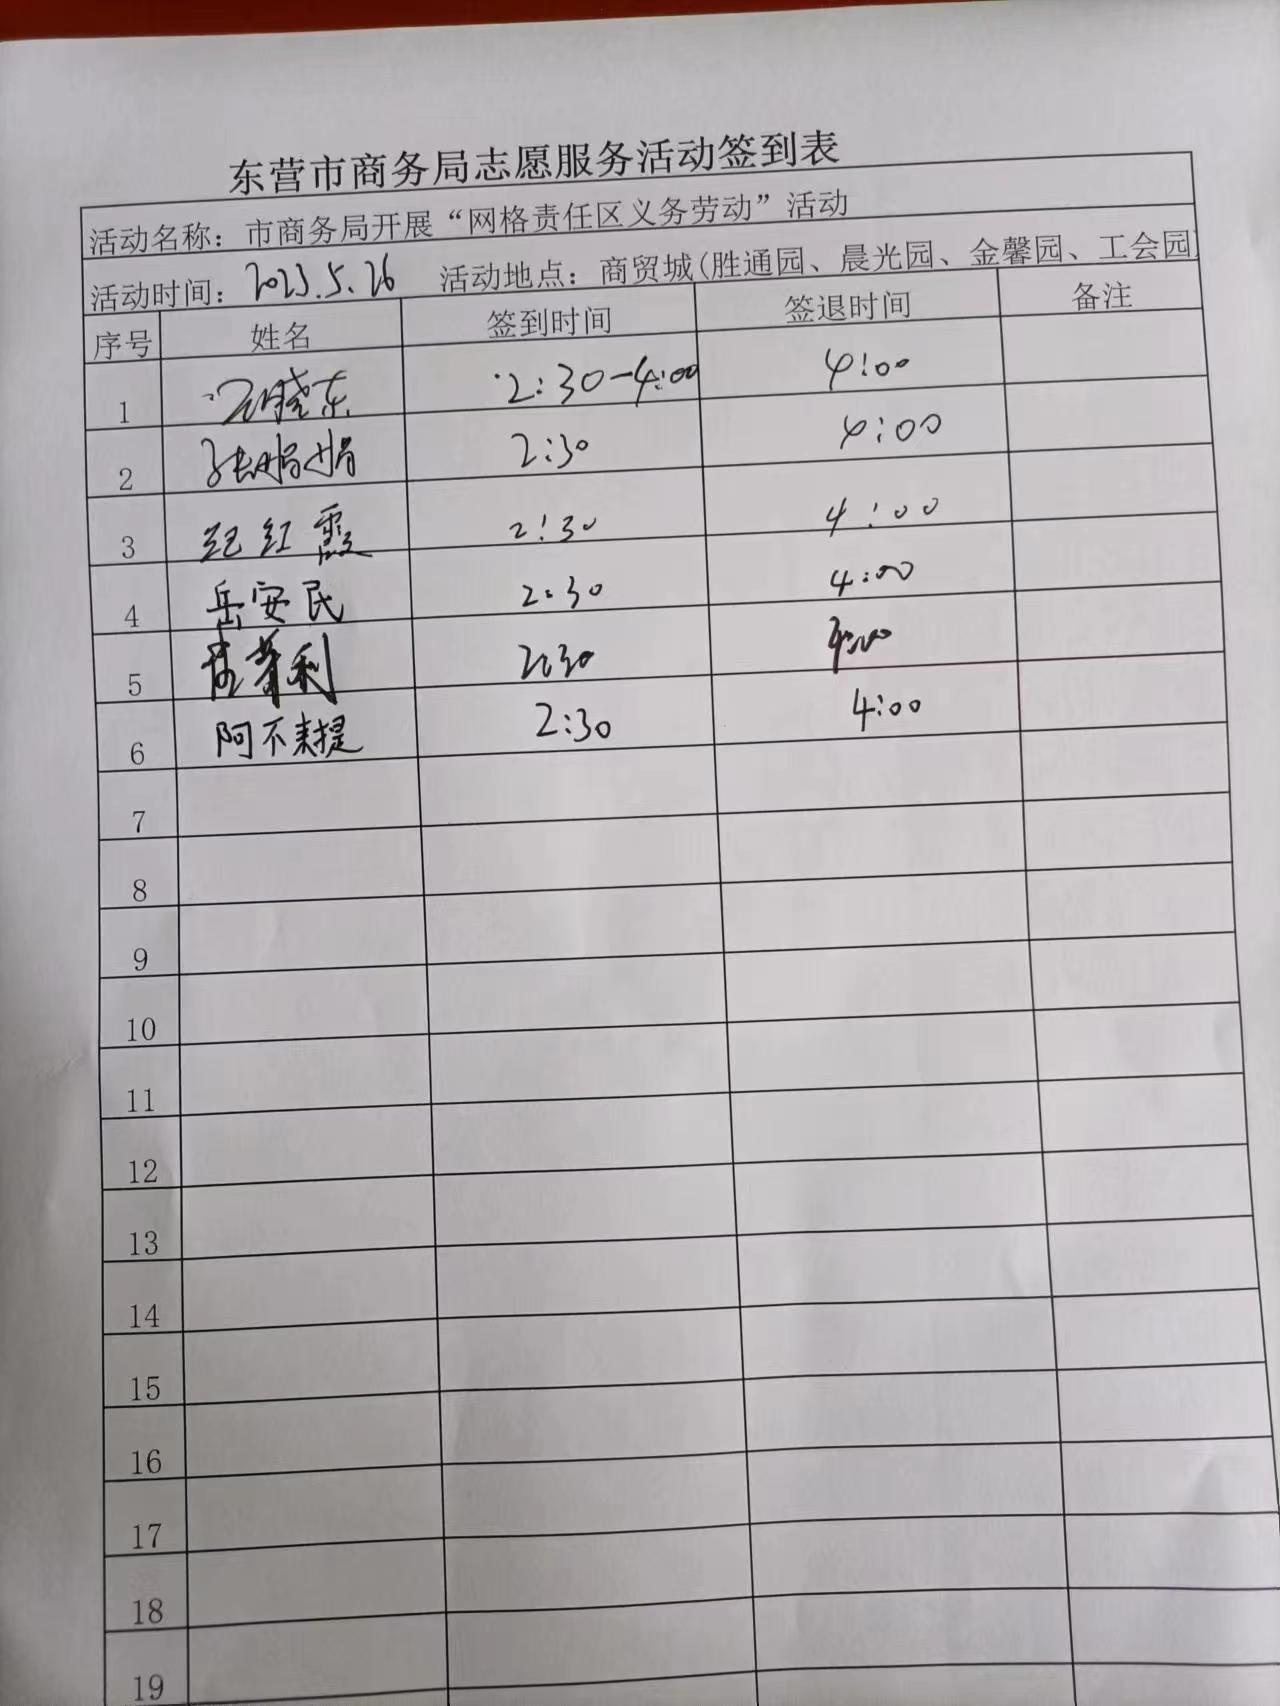 东营市商务局志愿服务活动签到表
活动名称：市商务局开展“网格责任区义务劳动”活动
活动时间：2023.5.26 活动地点：商贸城(胜通园、晨光园、金馨园、工会园)
序号 姓名 签到时间 签退时间 备注
1 晓东 2:30-4:00 4:00
2 张娟娟 2:30 4:00
3 纪红霞 2:30 4:00
4 岳安民 2:30 4:00
5 利 2:30 4:00
6 阿不来提 2:30 4:00
7
8
9
10
11
12
13
14
15
16
17
18
19